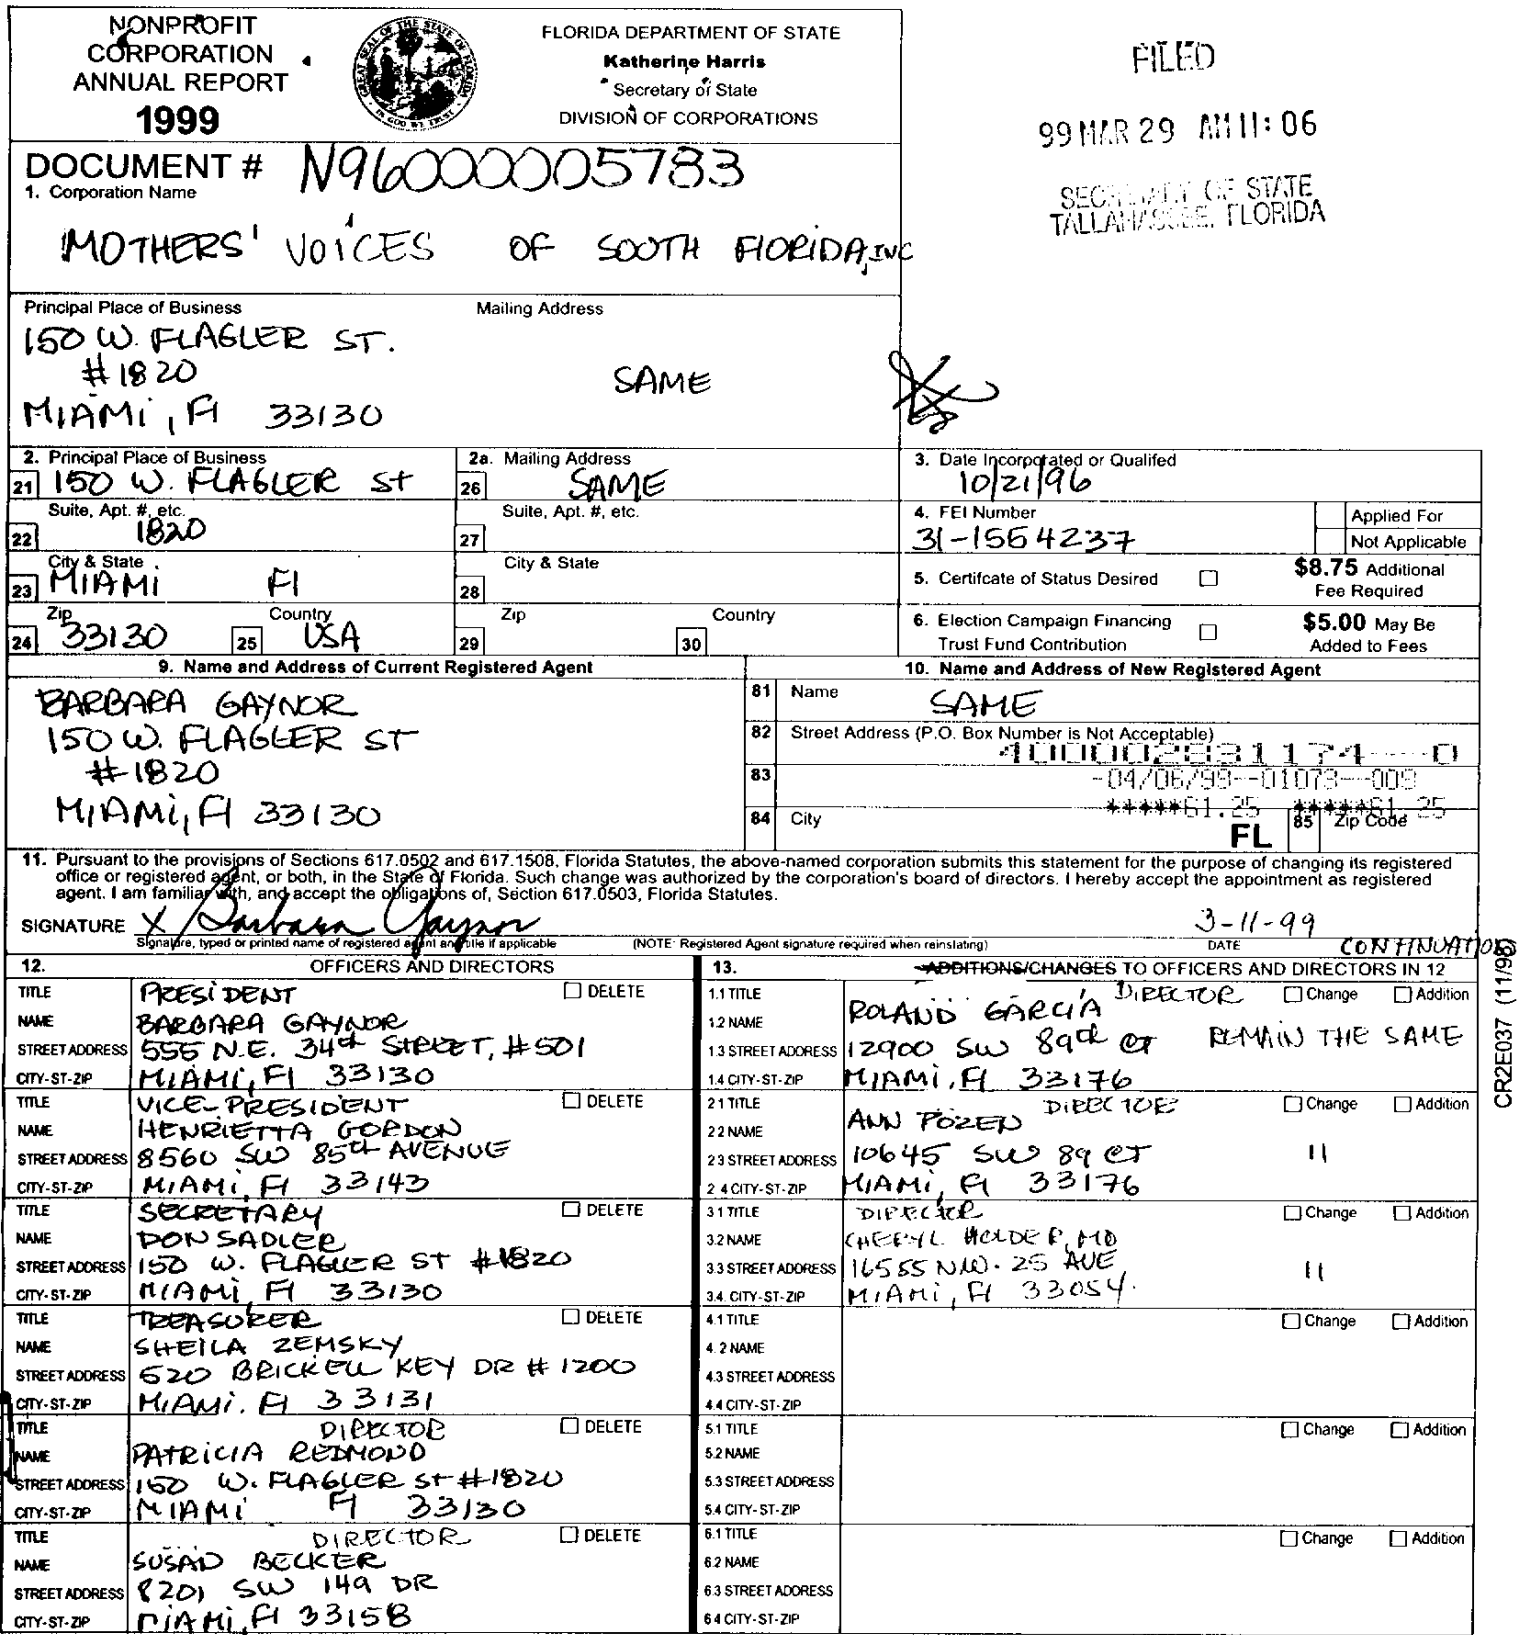 NONPROFIT
CORPORATION
ANNUAL REPORT
1999
GREAT SEAL OF THE STATE OF FLORIDA
IN GOD WE TRUST
FLORIDA DEPARTMENT OF STATE
Katherine Harris
Secretary of State
DIVISION OF CORPORATIONS
FILED
99 MAR 29 AM 11: 06
SECRETARY OF STATE
TALLAHASSEE, FLORIDA
DOCUMENT # N96000005783
1. Corporation Name
MOTHERS' VOICES OF SOUTH FLORIDA, INC
Principal Place of Business Mailing Address
150 W. FLAGLER ST.
#1820 SAME
MIAMI, Fl 33130
2. Principal Place of Business 2a. Mailing Address
21 150 W. FLAGLER St 26 SAME
Suite, Apt. #, etc. Suite, Apt. #, etc.
22 1820 27
City & State City & State
23 MIAMI Fl 28
Zip Country Zip Country
24 33130 25 USA 29 30
3. Date Incorporated or Qualifed
10/21/96
4. FEI Number Applied For
31-1554237 Not Applicable
5. Certifcate of Status Desired $8.75 Additional
Fee Required
6. Election Campaign Financing $5.00 May Be
Trust Fund Contribution Added to Fees
9. Name and Address of Current Registered Agent
BARBARA GAYNOR
150 W. FLAGLER ST
#1820
MIAMI, Fl 33130
10. Name and Address of New Registered Agent
81 Name SAME
82 Street Address (P.O. Box Number is Not Acceptable)
400002831174---0
83 -04/06/99--01073--009
*****61.25 *****61.25
84 City FL 85 Zip Code
11. Pursuant to the provisions of Sections 617.0502 and 617.1508, Florida Statutes, the above-named corporation submits this statement for the purpose of changing its registered
office or registered agent, or both, in the State of Florida. Such change was authorized by the corporation's board of directors. I hereby accept the appointment as registered
agent. I am familiar with, and accept the obligations of, Section 617.0503, Florida Statutes.
SIGNATURE X Barbara Gaynor 3-11-99
Signature, typed or printed name of registered agent and title if applicable (NOTE: Registered Agent signature required when reinstating) DATE
CONTINUATION
12. OFFICERS AND DIRECTORS
TITLE PRESIDENT DELETE
NAME BARBARA GAYNOR
STREET ADDRESS 555 N.E. 34th STREET, #501
CITY-ST-ZIP MIAMI, Fl 33130
TITLE VICE-PRESIDENT DELETE
NAME HENRIETTA GORDON
STREET ADDRESS 8560 SW 85th AVENUE
CITY-ST-ZIP MIAMI, Fl 33143
TITLE SECRETARY DELETE
NAME DON SADLER
STREET ADDRESS 150 W. FLAGLER ST #1820
CITY-ST-ZIP MIAMI, Fl 33130
TITLE TREASURER DELETE
NAME SHEILA ZEMSKY
STREET ADDRESS 520 BRICKELL KEY DR # 1200
CITY-ST-ZIP MIAMI. Fl 33131
TITLE DIRECTOR DELETE
NAME PATRICIA REDMOND
STREET ADDRESS 150 W. FLAGLER St #1820
CITY-ST-ZIP MIAMI Fl 33130
TITLE DIRECTOR DELETE
NAME SUSAN BECKER
STREET ADDRESS 8201 SW 149 DR
CITY-ST-ZIP MIAMI, Fl 33158
13. ADDITIONS/CHANGES TO OFFICERS AND DIRECTORS IN 12
1.1 TITLE DIRECTOR Change Addition
1.2 NAME ROLAND GARCIA
1.3 STREET ADDRESS 12900 SW 89th CT REMAIN THE SAME
1.4 CITY-ST-ZIP MIAMI, Fl 33176
2 1 TITLE DIRECTOR Change Addition
2 2 NAME ANN POZEN
2 3 STREET ADDRESS 10645 SW 89 CT "
2 4 CITY-ST-ZIP MIAMI, Fl 33176
3 1 TITLE DIRECTOR Change Addition
3.2 NAME CHERYL HOLDER, MD
3.3 STREET ADDRESS 16555 N.W. 25 AVE "
3.4. CITY-ST-ZIP MIAMI, Fl 33054.
4.1 TITLE Change Addition
4. 2 NAME
4.3 STREET ADDRESS
4.4 CITY-ST-ZIP
5.1 TITLE Change Addition
5.2 NAME
5.3 STREET ADDRESS
5.4 CITY-ST-ZIP
6.1 TITLE Change Addition
6.2 NAME
6.3 STREET ADDRESS
6 4 CITY-ST-ZIP
CR2E037 (11/98)